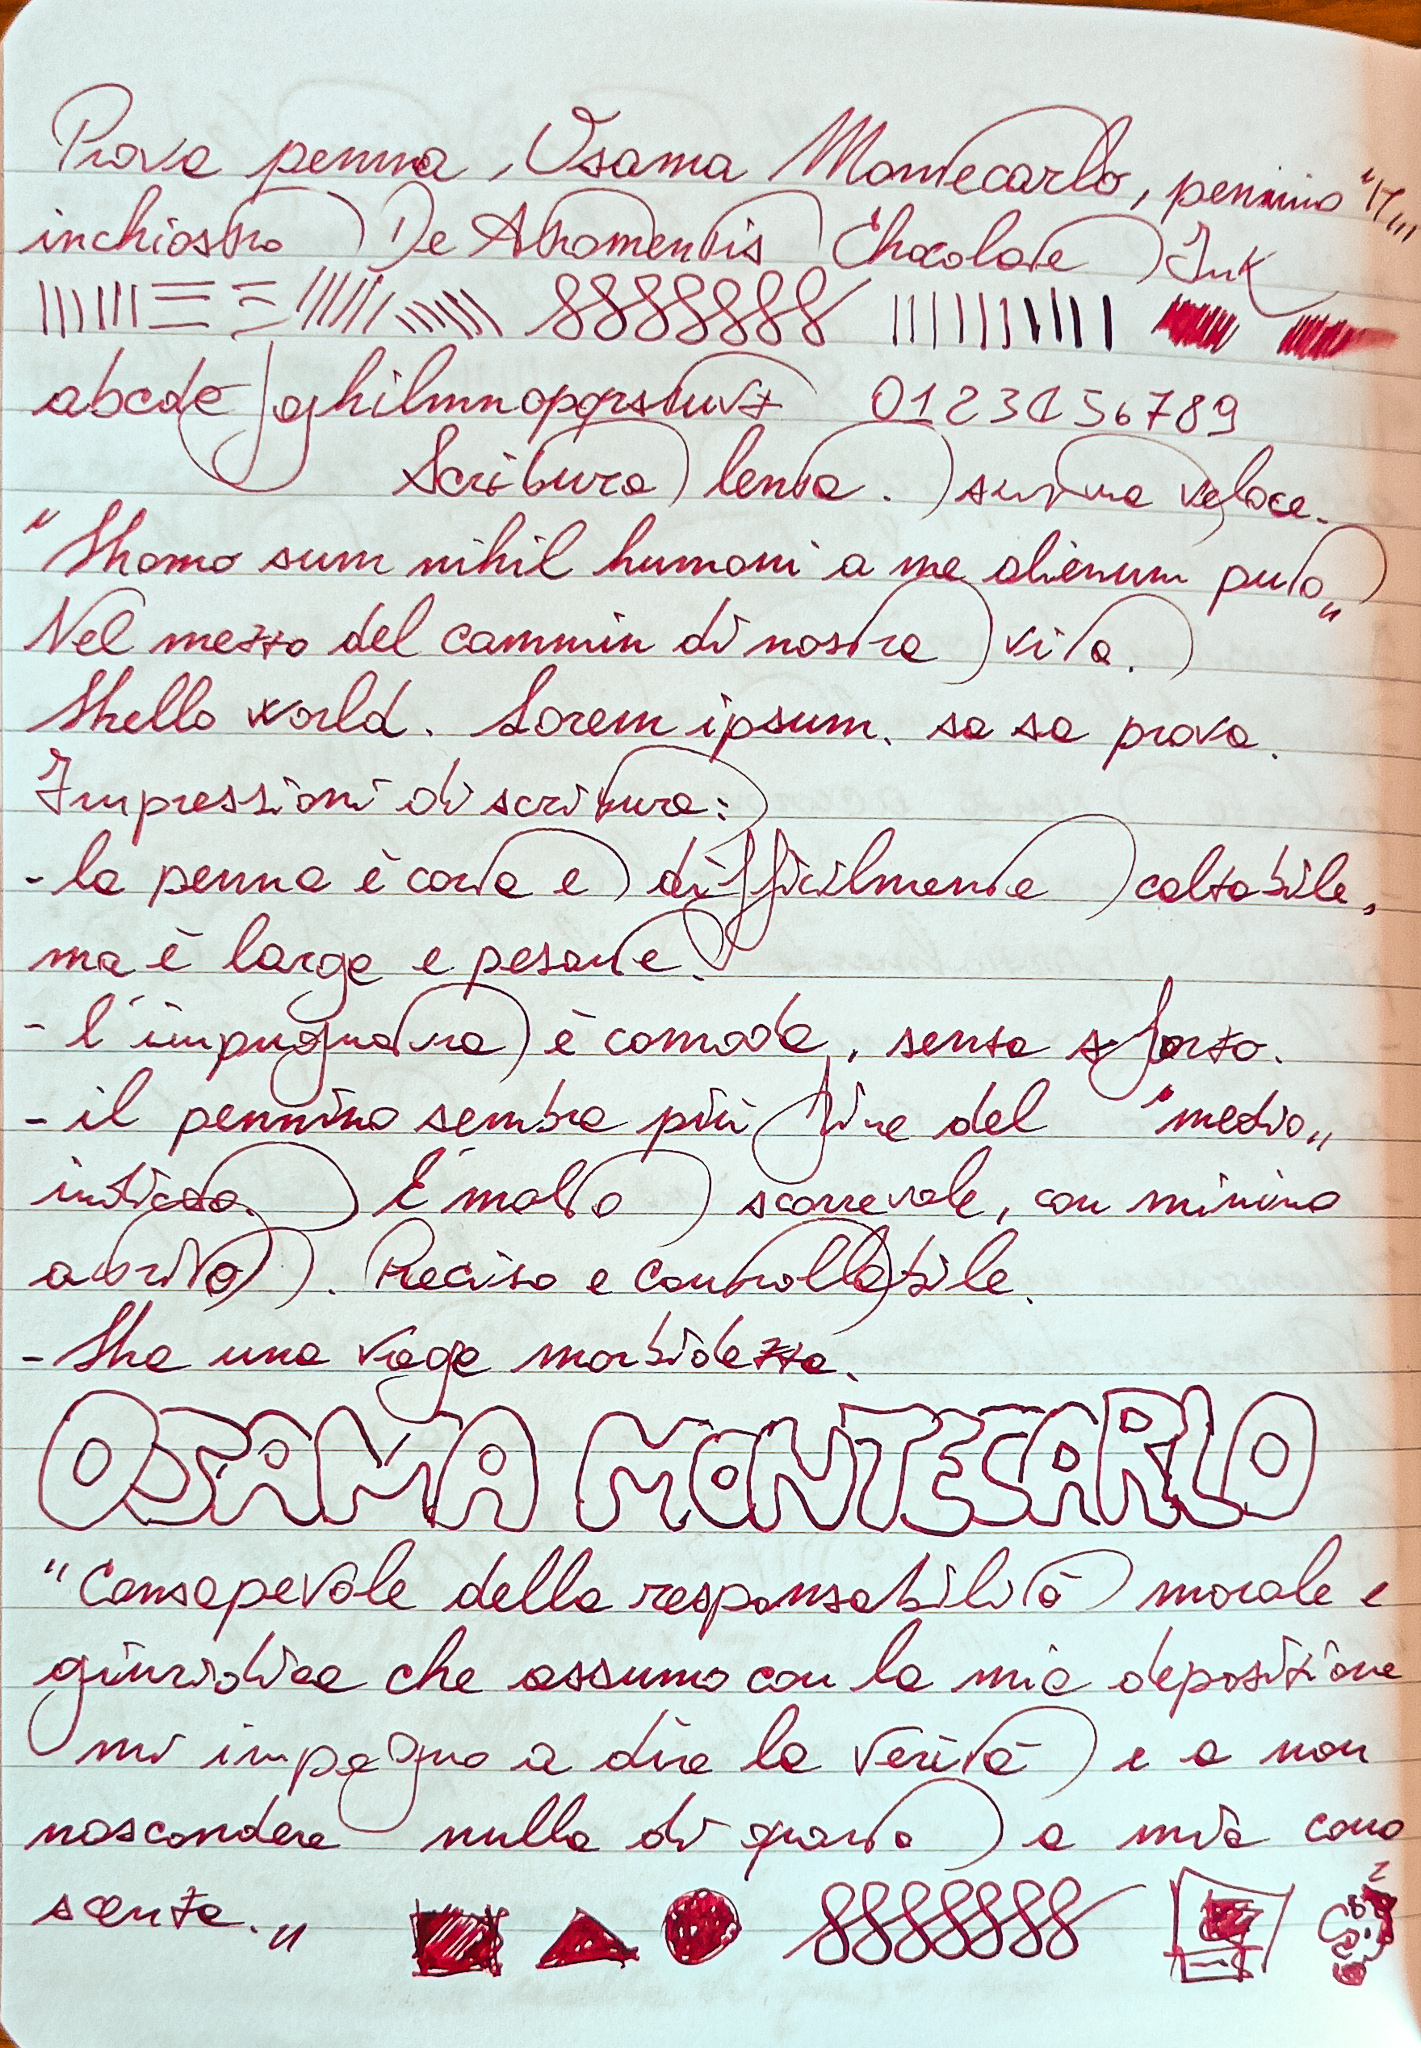 Prova penna, Osama Montecarlo, pennino "M"
inchiostro De Atramentis Chocolate Ink
abcdefghilmnopqrstuvz 0123456789
Scrittura lenta. scrittura veloce.
"Homo sum nihil humani a me alienum puto"
Nel mezzo del cammin di nostra vita.
Hello world. Lorem ipsum. sa sa prova.
Impressioni di scrittura:
- la penna è corta e difficilmente calzabile,
ma è larga e pesante.
- l'impugnatura è comoda, senza sforzo.
- il pennino sembra più fine del "medio"
indicato. È molto scorrevole, con minimo
attrito. Preciso e controllabile.
- Ha una vaga morbidezza.
OSAMA MONTECARLO
"Consapevole della responsabilità morale e
giuridica che assumo con la mia deposizione
mi impegno a dire la verità e a non
nascondere nulla di quanto a mia cono
scenza."